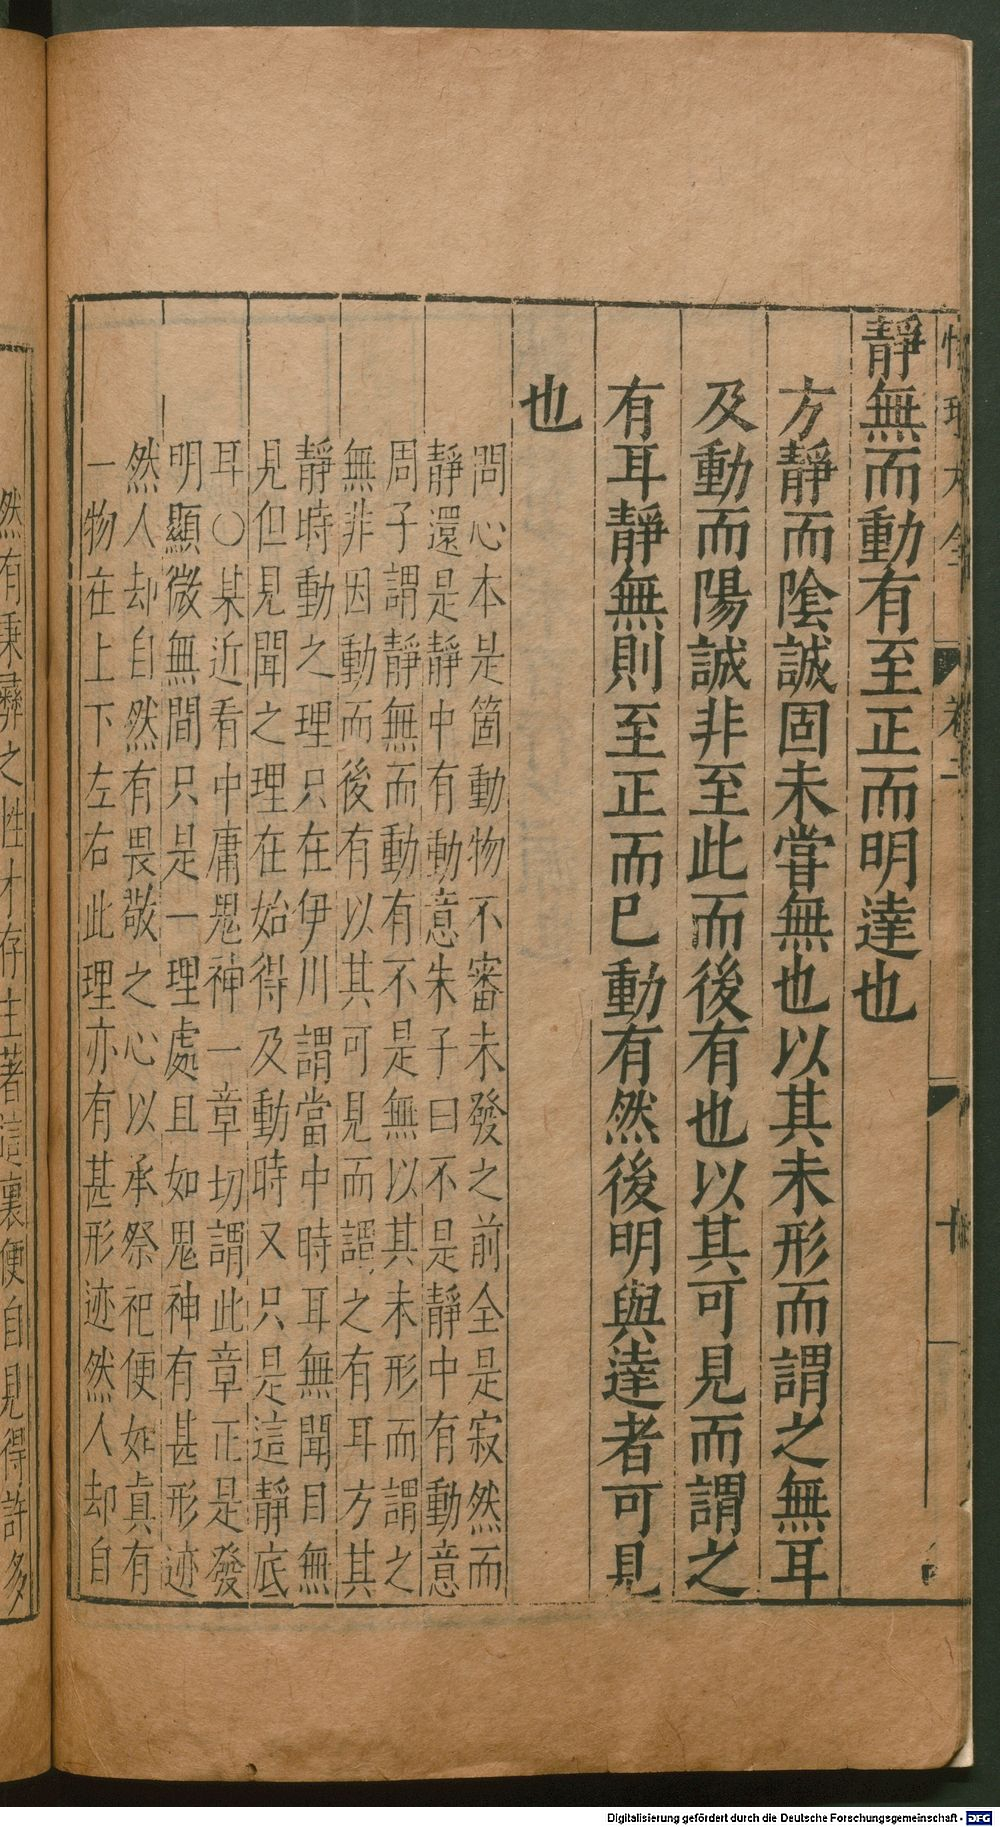 性理大全 卷二 十
靜無而動有至正而明達也
方靜而陰誠固未嘗無也以其未形而謂之無耳
及動而陽誠非至此而後有也以其可見而謂之
有耳靜無則至正而已動有然後明與達者可見
也
問心本是箇動物不審未發之前全是寂然而
靜還是靜中有動意朱子曰不是靜中有動意
周子謂靜無而動有不是無以其未形而謂之
無非因動而後有以其可見而謂之有耳方其
靜時動之理只在伊川謂當中時耳無聞目無
見但見聞之理在始得及動時又只是這靜底
耳○某近看中庸鬼神一章切謂此章正是發
明顯微無間只是一理處且如鬼神有甚形迹
然人却自然有畏敬之心以承祭祀便如真有
一物在上下左右此理亦有甚形迹然人却自
然有秉彝之性才存主著這裏便自見得許多
Digitalisierung gefördert durch die Deutsche Forschungsgemeinschaft - DFG